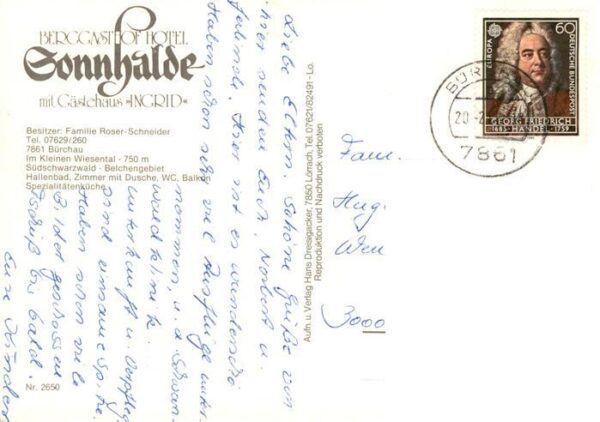 BERGGASTHOF HOTEL
Sonnhalde
mit Gästehaus »INGRID«
Besitzer: Familie Roser-Schneider
Tel. 07629/260
7861 Bürchau
Im Kleinen Wiesental - 750 m
Südschwarzwald - Belchengebiet
Hallenbad, Zimmer mit Dusche, WC, Balkon
Spezialitätenküche
Nr. 2650
Liebe Eltern. Schöne Grüße von
hier senden Euch, Norbert u.
Gerlinde. Hier ist es wunderschö
Haben schon sehr viel Ausflüge unter-
nommen, u. a. Schwarz
waldklinik.
Unterkunft u. Verpfleg.
sind einsame Spitze.
Haben schon viele
Bilder geschossen
Tschüß bis bald.
Eure Kinder
Aufn. u. Verlag Hans Dreisigacker, 7850 Lörrach, Tel. 07621/82491 - Lo.
Reproduktion und Nachdruck verboten
Fam.
Hug.
3000
EUROPA
60
DEUTSCHE BUNDESPOST
GEORG FRIEDRICH
1685 HÄNDEL 1759
BÜR
20
7861